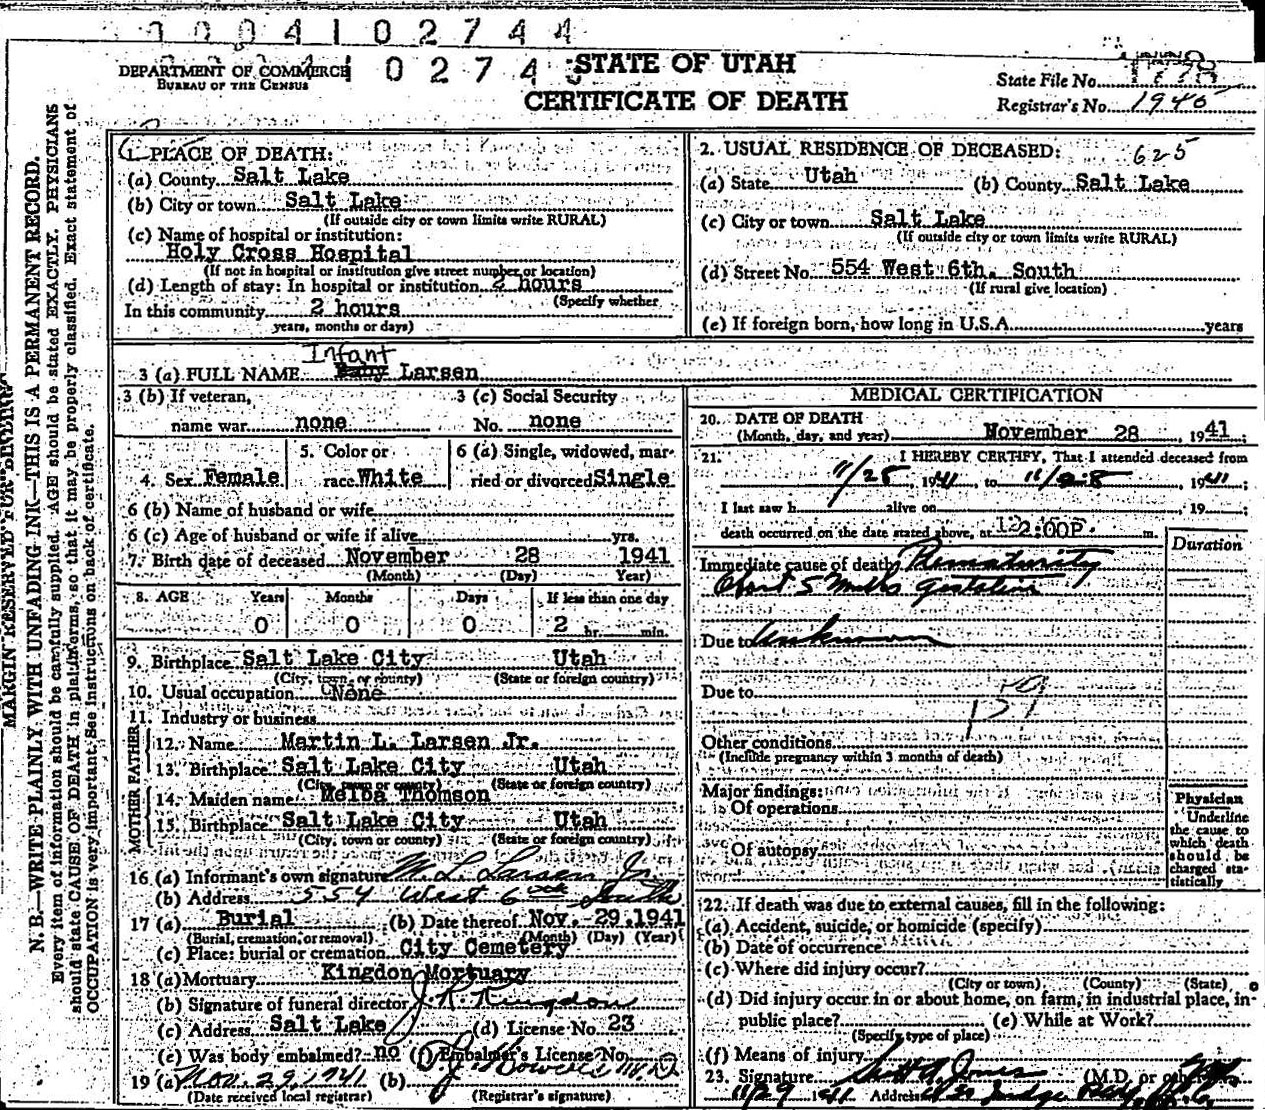 0004102744
DEPARTMENT OF COMMERCE
BUREAU OF THE CENSUS
STATE OF UTAH
CERTIFICATE OF DEATH
State File No.
Registrar's No. 1940
MARGIN RESERVED FOR BINDING
N. B.—WRITE PLAINLY WITH UNFADING INK—THIS IS A PERMANENT RECORD.
Every item of information should be carefully supplied. AGE should be stated EXACTLY. PHYSICIANS
should state CAUSE OF DEATH in plain terms, so that it may be properly classified. Exact statement of
OCCUPATION is very important. See instructions on back of certificate.
1. PLACE OF DEATH:
(a) County Salt Lake
(b) City or town Salt Lake
(If outside city or town limits write RURAL)
(c) Name of hospital or institution:
Holy Cross Hospital
(If not in hospital or institution give street number or location)
(d) Length of stay: In hospital or institution 2 hours
(Specify whether
In this community 2 hours
years, months or days)
2. USUAL RESIDENCE OF DECEASED: 625
(a) State Utah (b) County Salt Lake
(c) City or town Salt Lake
(If outside city or town limits write RURAL)
(d) Street No. 554 West 6th. South
(If rural give location)
(e) If foreign born, how long in U.S.A. years
Infant
3 (a) FULL NAME Baby Larsen
3 (b) If veteran, 3 (c) Social Security
name war none No. none
4. Sex Female 5. Color or race White 6 (a) Single, widowed, married or divorced Single
6 (b) Name of husband or wife
6 (c) Age of husband or wife if alive yrs.
7. Birth date of deceased November 28 1941
(Month) (Day) Year)
8. AGE Years Months Days If less than one day
0 0 0 2 hr. min.
9. Birthplace Salt Lake City Utah
(City, town, or county) (State or foreign country)
10. Usual occupation None
11. Industry or business
FATHER
12. Name Martin L. Larsen Jr.
13. Birthplace Salt Lake City Utah
(City, town or county) (State or foreign country)
MOTHER
14. Maiden name Melba Thomson
15. Birthplace Salt Lake City Utah
(City, town or county) (State or foreign country)
16 (a) Informant's own signature M. L. Larsen Jr.
(b) Address 554 West 6 South
17 (a) Burial (b) Date thereof Nov. 29, 1941
(Burial, cremation, or removal) (Month) (Day) (Year)
(c) Place: burial or cremation City Cemetery
18 (a) Mortuary Kingdon Mortuary
(b) Signature of funeral director J. R. Kingdon
(c) Address Salt Lake (d) License No. 23
(e) Was body embalmed? no (f) Embalmer's License No.
19 (a) Nov. 29, 1941 (b) M.D.
(Date received local registrar) (Registrar's signature)
MEDICAL CERTIFICATION
20. DATE OF DEATH
(Month, day, and year) November 28, 1941;
21. I HEREBY CERTIFY, That I attended deceased from
11/28, 1941 to 11/28, 1941;
I last saw h alive on , 19 ;
death occurred on the date stated above, at 2:00P. m.
Duration
Immediate cause of death Prematurity
5 gestation
Due to Unknown
Due to
159
Other conditions
(Include pregnancy within 3 months of death)
Major findings:
Of operations
Of autopsy
Physician
Underline
the cause to
which death
should be
charged sta-
tistically
22. If death was due to external causes, fill in the following:
(a) Accident, suicide, or homicide (specify)
(b) Date of occurrence
(c) Where did injury occur?
(City or town) (County) (State)
(d) Did injury occur in or about home, on farm, in industrial place, in
public place? (e) While at Work?
(Specify type of place)
(f) Means of injury
23. Signature Jones (M.D. or other)
11/29 1941 Address Judge Bldg.